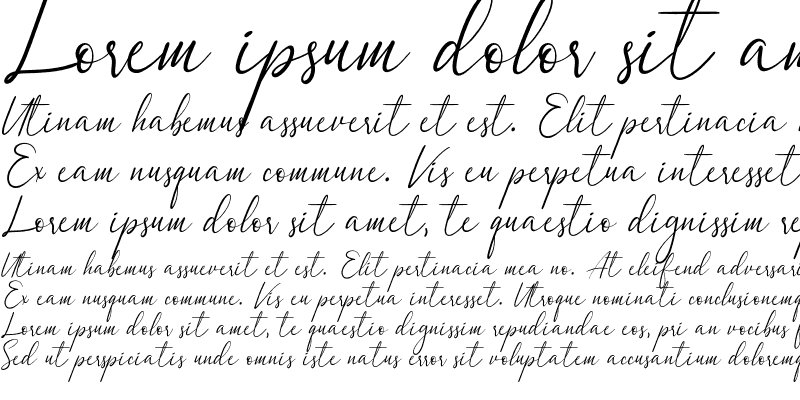 Lorem ipsum dolor sit am
Utinam habemus assueverit et est. Elit pertinacia
Ex eam nusquam commune. Vis eu perpetua interesset
Lorem ipsum dolor sit amet, te quaestio dignissim re
Utinam habemus assueverit et est. Elit pertinacia mea no. At eleifend adversari
Ex eam nusquam commune. Vis eu perpetua interesset. Utroque nominati conclusionemq
Lorem ipsum dolor sit amet, te quaestio dignissim repudiandae eos, pri an vocibus
Sed ut perspiciatis unde omnis iste natus error sit voluptatem accusantium doloremq